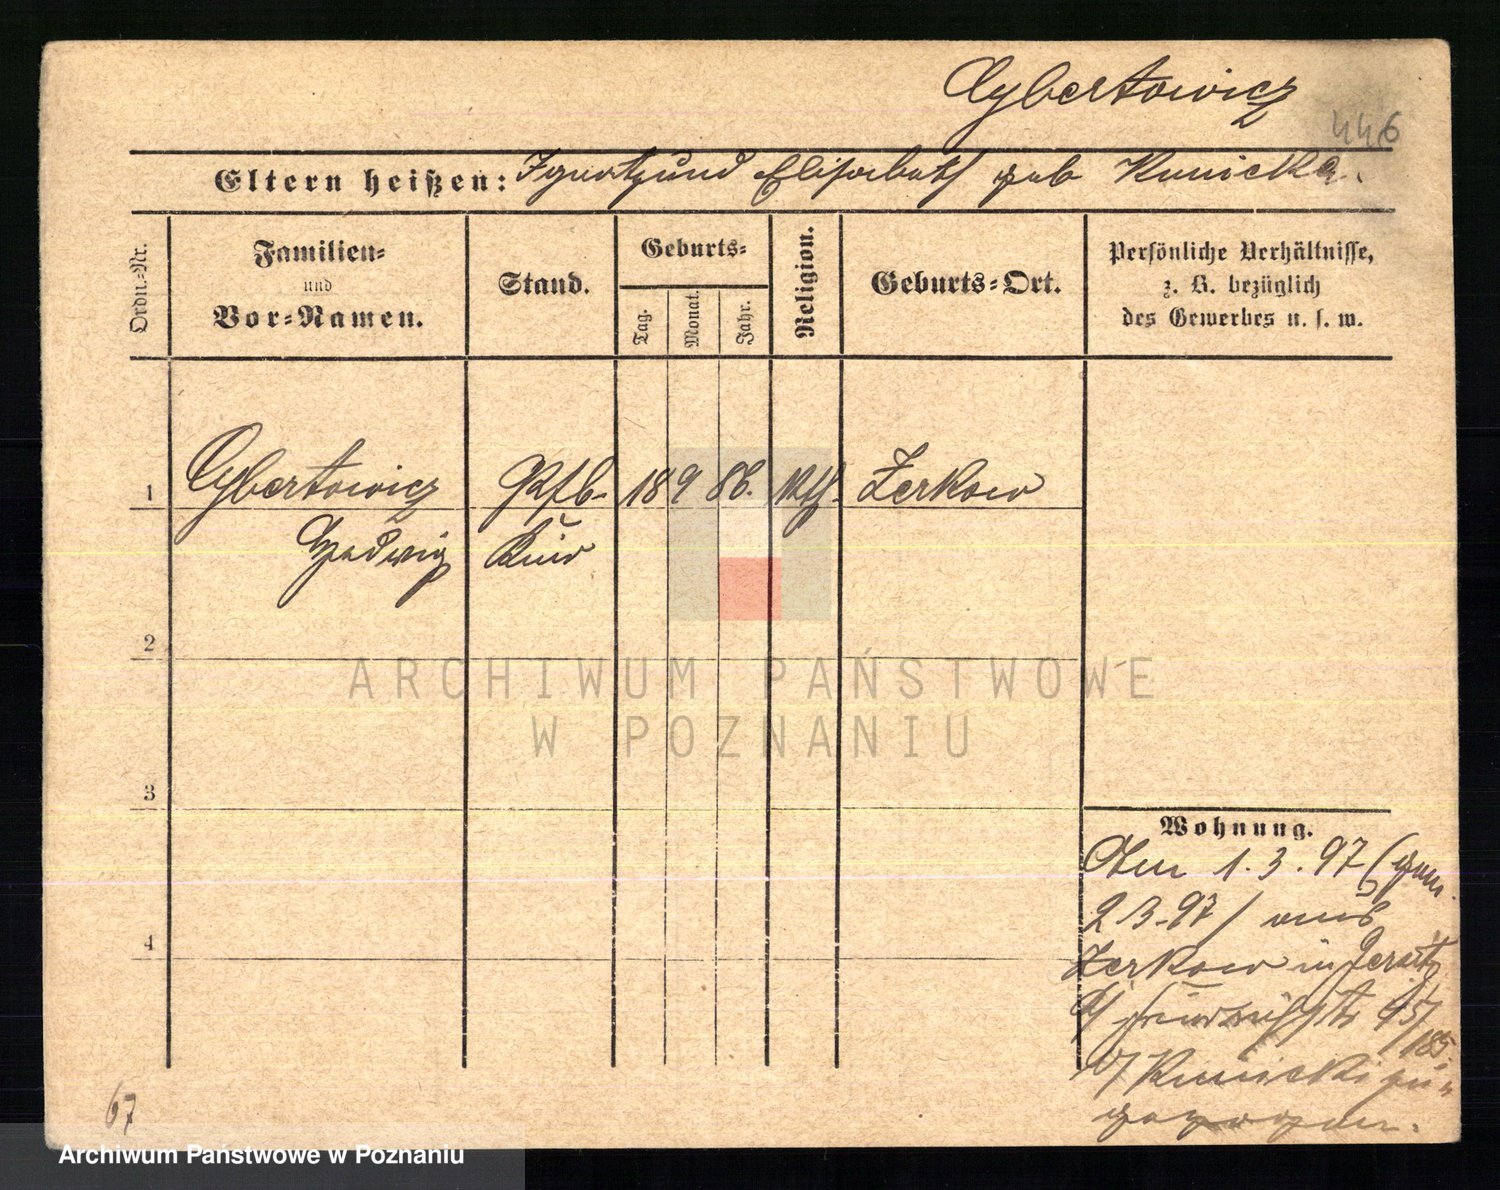 Cybertowicz
446
Eltern heißen: Ignatz und Elisabeth geb Kunicka.
Ordn.-Nr.
Familien-
und
Vor-Namen.
Stand.
Geburts-
Tag.
Monat.
Jahr.
Religion.
Geburts-Ort.
Persönliche Verhältnisse,
z. B. bezüglich
des Gewerbes u. s. w.
1 Cybertowicz 18 9 86. Kth. Zerkow
Hedwig
2
3
4
Wohnung.
Am 1.3.97 (gem.
2 3.97) aus
Zerkow in Jersitz
185.
Kunicki zu-
gezogen.
67
ARCHIWUM PAŃSTWOWE
W POZNANIU
Archiwum Państwowe w Poznaniu